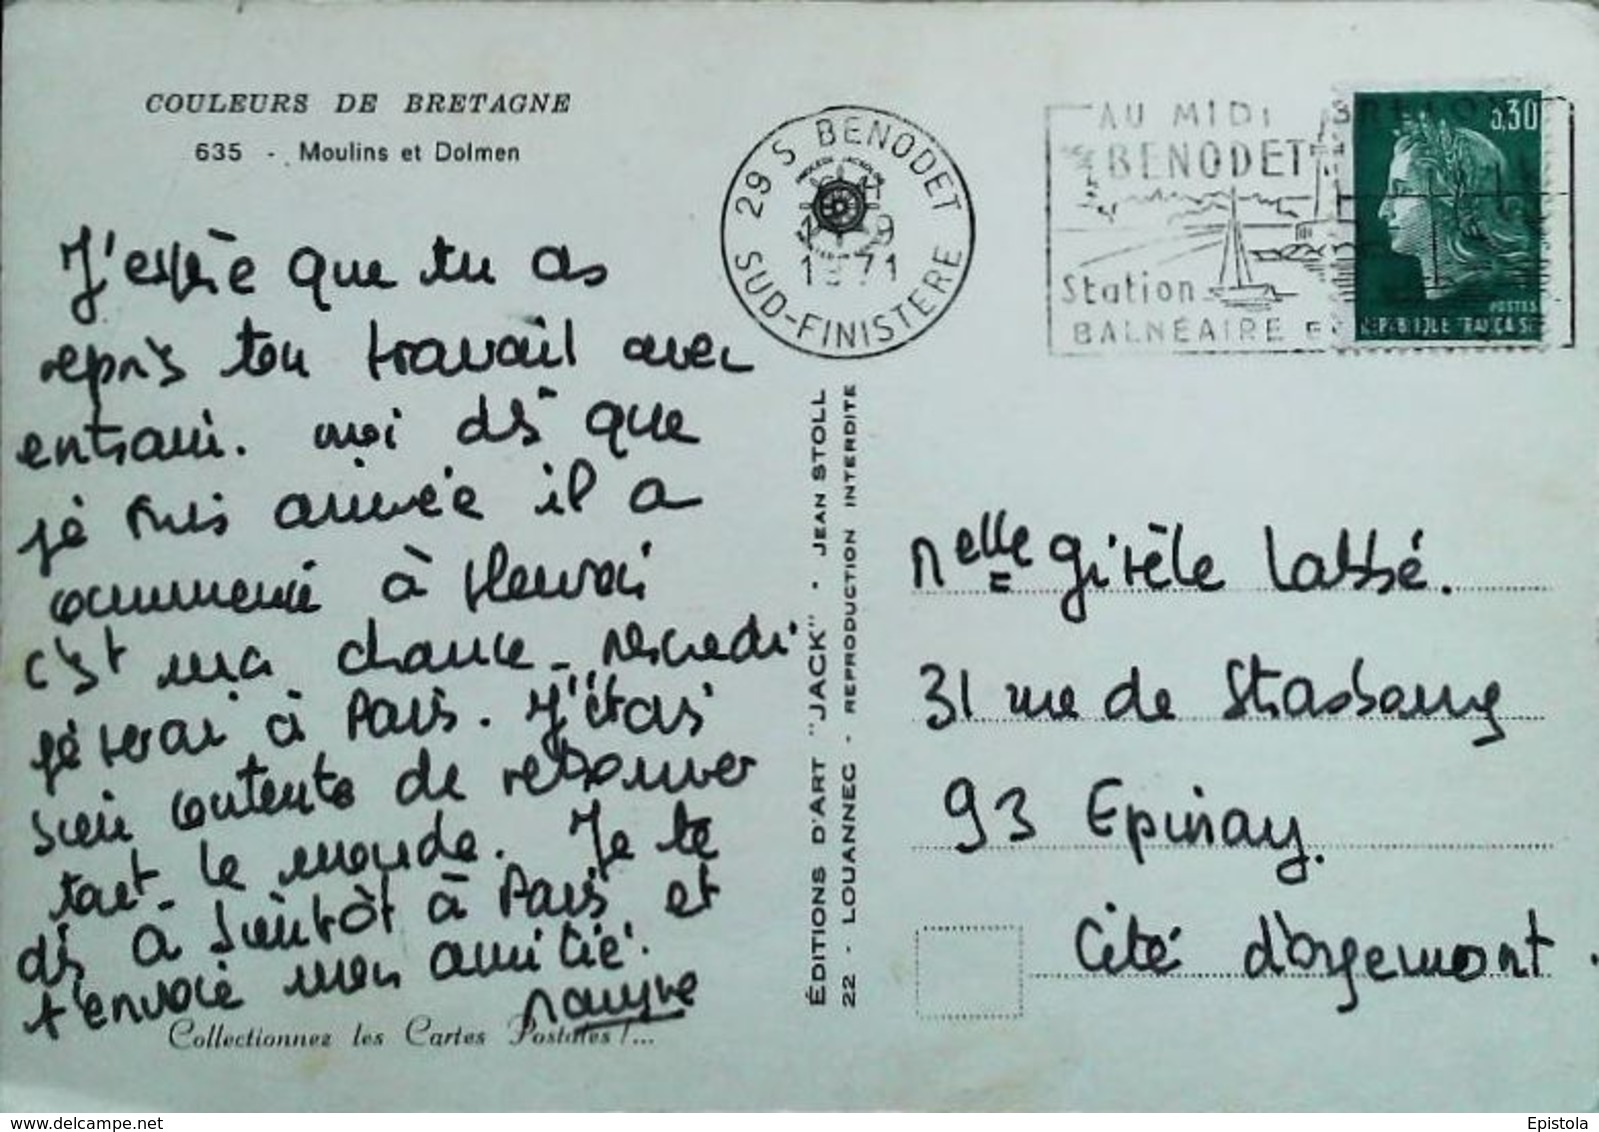 COULEURS DE BRETAGNE
635 - Moulins et Dolmen
J'espère que tu as
repris ton travail avec
entrain. moi dès que
je suis arrivée il a
commencé à pleuvoir
c'est ma chance. Mercredi
je serai à Paris. J'étais
bien contente de retrouver
tout le monde. Je te
dis à bientôt à Paris et
t'envoie mon amitié.
Collectionnez les Cartes Postales !...
29 S BENODET
1971
SUD-FINISTERE
AU MIDI
BENODET
Station
BALNÉAIRE
0,30
POSTES
REPUBLIQUE FRANÇAISE
ÉDITIONS D'ART "JACK" - JEAN STOLL
22 - LOUANNEC - REPRODUCTION INTERDITE
Melle Gisèle Labbé.
31 rue de Strasbourg
93 Epinay.
Cité d'Orgemont.
delcampe.net
Epistola